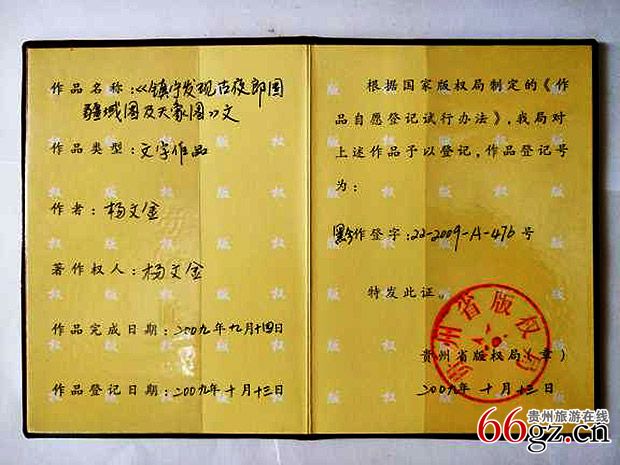 作品名称:《镇宁发现古夜郎国
疆域图及天象图》文
作品类型:文字作品
作者:杨文金
著作权人:杨文金
作品完成日期:二00九年九月十四日
作品登记日期:二00九年十月十三日
根据国家版权局制定的《作
品自愿登记试行办法》,我局对
上述作品予以登记,作品登记号
为:
黔作登字:22-2009-A-476号
特发此证。
贵州省版权局(章)
二00九年十月十三日
贵州省版权局
66gz.cn
贵州旅游在线